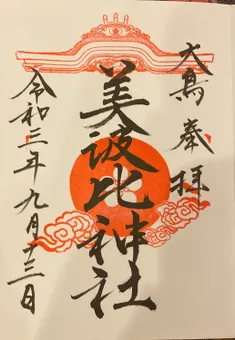 大鳥奉拝
美波比神社
令和三年九月十三日